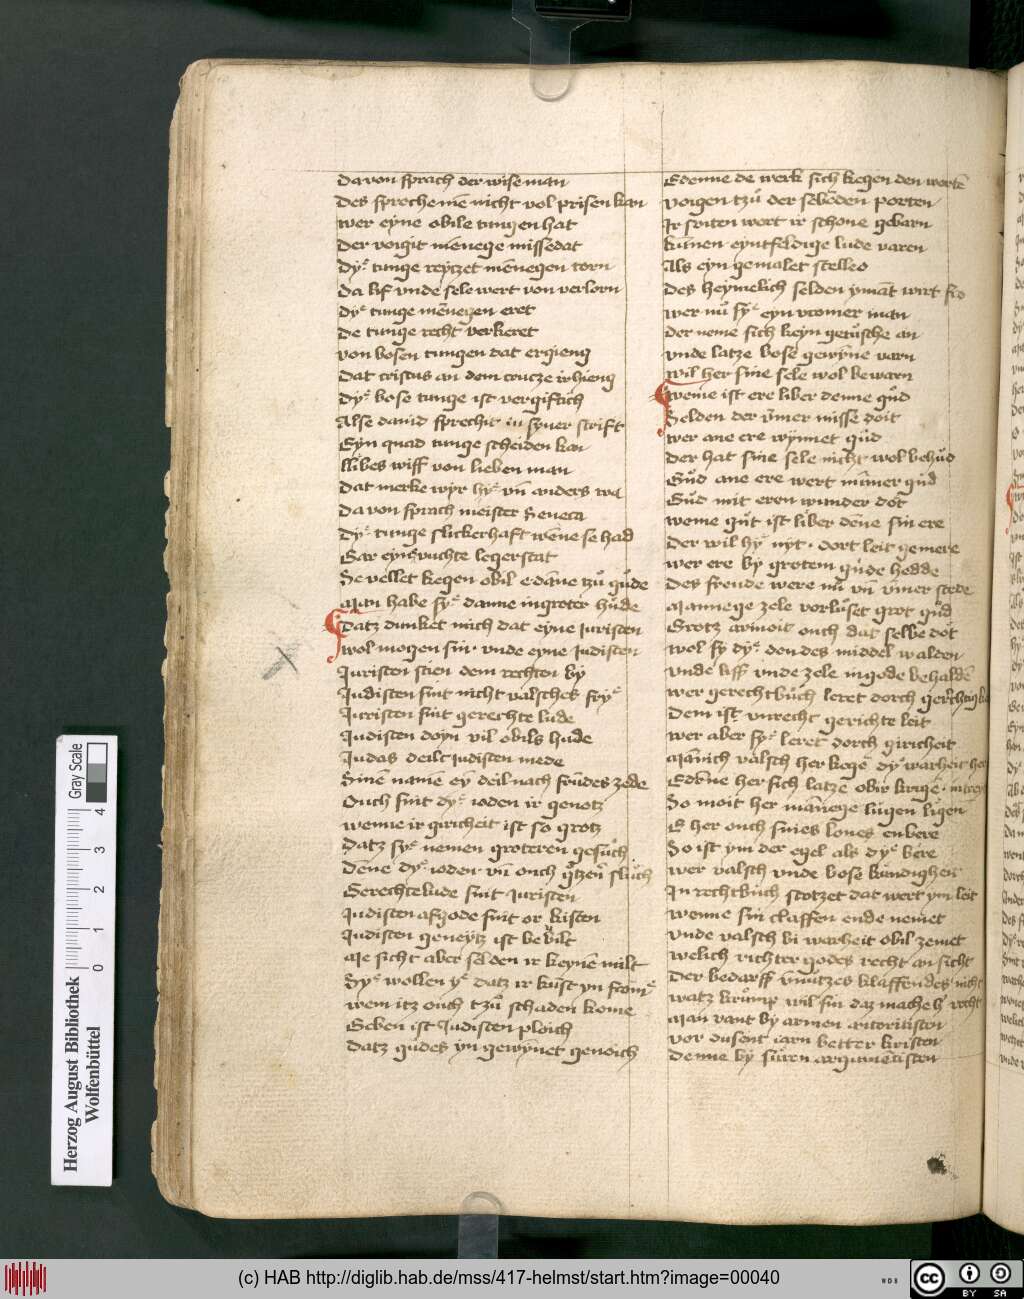 Da von sprach der wise man
Des spreche mē nicht vol prisen kan
Wer eyne obile tungen hat
Der voigit mēnege missedat
Dyͤ tunge reyczet mēnegen torn
Da lif vnde sele wert von verlorn
Dyͤ tunge mēnegen eret
De tunge recht verkeret
Von bosen tungen dat ergieng
Dat cristus an dem crucze irhieng
Dyͤ bose tunge ist vergiftich
Alse dauid sprechit in syner scrift
Eyn quad tunge scheiden kan
Libes wiff von lieben man
Dat merke wyr hyͤ vn̄ anders wa
Da von sprach meister Seneca
Dyͤ tunge slickerhaft wēne se had
Gar eyns vuchte legerstat
Se vellet kegen obil e dāne tzů gůde
Man habe syͤ danne in groter hůde
Datz dunket mich dat eyne Juristen
Wol mogen sin vnde eyne Judisten
Juristen stien dem rechten by
Judisten sint nicht valsches fryͤ
Juristen sint gerechte lude
Judisten doyn vil obils hude
Judas deilt Judisten mede
Sinē namē eyn deil nach frūdes zede
Ouch sint dyͤ ioden ir genotz
Wenne ir giricheit ist so grotz
Datz syͤ nemen groteren gesůch
Dene dyͤ ioden vn̄ ouch flůch
Gerechte lude sint Juristen
Judisten afgode sint or kisten
Judisten geneytz ist be vilt
Me sicht aber selden ir keynē milt
Syͤ wollen yͤ datz ir kūst yn fromͤ
Wem itz ouch tzů schaden kome
Geben ist Judisten ploich
Datz gůdes yn gewynet genoich
E denne de werk sich kegen den wortē
Voigen tzů der selben porten
Ir snten wort ir schone gebarn
Kūnen eyntfeldige lude varen
Als eyn gemalet stelleo
Des heymelich selden ymāt wirt fro
Wer nů syͤ eyn vromer man
Der neme sich keyn gerůsche an
Vnde latze bose gewyne varn
Wil her sine sele wol bewarn
Weme ist ere liber denne gůd
Selden der vmer misse doit
Wer ane ere wynnet gůd
Der hat sine sele nicht wol behůd
Gůd ane ere wert nūmer gůd
Gůd mit eren wunder dot
Weme gůt ist liber dēne sin ere
Der wil hyͤ nyt dort leit gemere
Wer ere by grotem gude hedde
Des freude were nū vn̄ vmer stede
Mannege zele vorlůset grot gůd
Grotz armoit ouch dat selbe dot
Wol sy dyͤ den des middel walden
Vnde liff vnde zele in gode behaldē
Wer gerechtbůch leret dorch
Dem ist vnrecht gerichte leit
Wer aber syͤ leret dorch giricheit
Mānich valsch her kegē dyͤ warheit
E dēne her sich latze obir krigē
So moit her mānege lůgen ligen
E her ouch sines lones enbere
So ist ym der egel als dyͤ bere
Wer valsch vnde bose kūndigheit
In rechtbůch stotzet dat wert ym leit
Wenne sin claffen ende nemet
Vnde valsch bi warheit obil zemet
Welich richter godes recht an sicht
Der bedarff vnnůtzes klaffendes nicht
Watz krůmp wil sin daz mache recht
Man vant by armen autoristen
Vor dusent iarn better kristen
Denne by sůren argumētisten
Herzog August Bibliothek
Wolfenbüttel
0 1 2 3 4
Gray Scale
(c) HAB http://diglib.hab.de/mss/417-helmst/start.htm?image=00040
WDB
cc BY SA